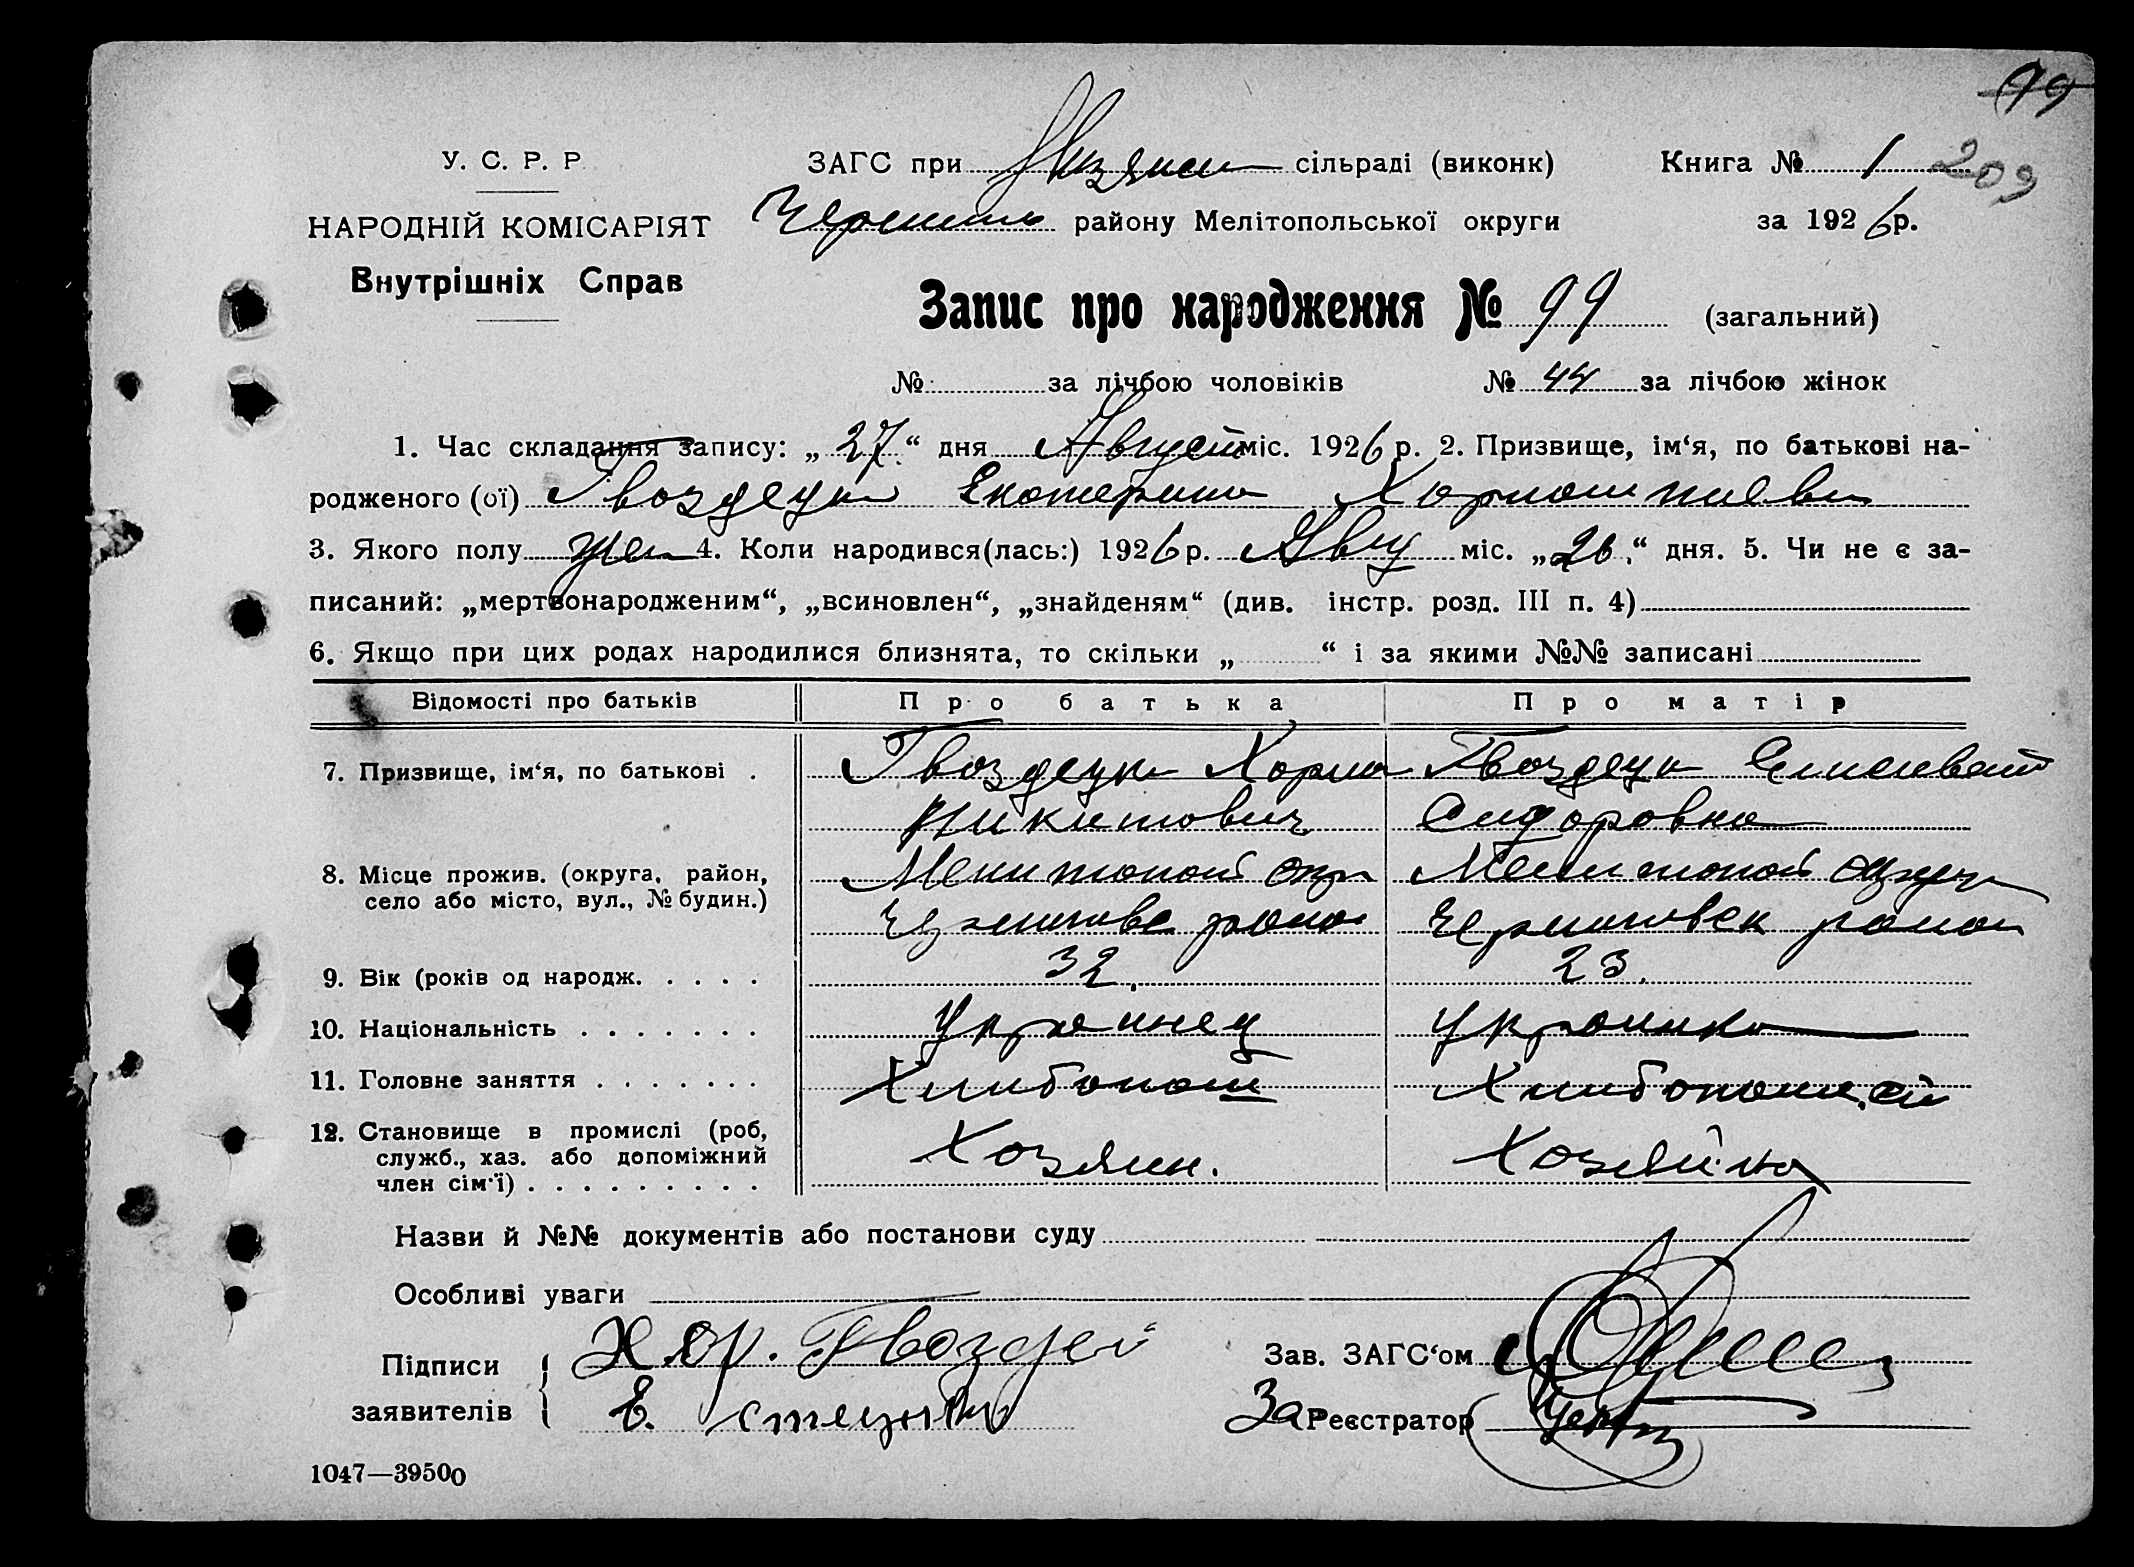 99
У. С. Р. Р.
ЗАГС при сільраді (виконк) Книга № 1 209
НАРОДНІЙ КОМІСАРІЯТ
району Мелітопольської округи за 1926 р.
Внутрішніх Справ
Запис про народження № 99 (загальний)
№ за лічбою чоловіків № 44 за лічбою жінок
1. Час складання запису: „27“ дня Август міс. 1926 р. 2. Призвище, ім‘я, по батькові на-
родженого (ої) Гвоздецка Екатерина
3. Якого полу жен 4. Коли народився(лась:) 1926 р. Авгу міс. „26.“ дня. 5. Чи не є за-
писаний: „мертвонародженим“, „всиновлен“, „знайденям“ (див. інстр. розд. III п. 4)
6. Якщо при цих родах народилися близнята, то скільки „ “ і за якими №№ записані
Відомості про батьків Про батька Про матір
7. Призвище, ім‘я, по батькові . Гвоздецки Гвоздецка Елисеват
Никитович Сидоровна
8. Місце прожив. (округа, район,
село або місто, вул., № будин.)
Мелитопол окр Мелитопол
района Черниговск район
9. Вік (років од народж. . . . . 32. 23.
10. Національність . . . . . . . Украинец Украинка
11. Головне заняття . . . . . . . Хлибопаш
12. Становище в промислі (роб,
служб., хаз. або допоміжний
член сім‘ї) . . . . . . . . . Хозяин. Хозяйка
Назви й №№ документів або постанови суду
Особливі уваги
Підписи Хар. Гвоздец Зав. ЗАГС‘ом
заявителів Е. За Реєстратор
1047—39500